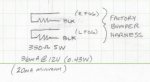 (R FOG)
BLK
(L FOG)
BLK
FACTORY
BUMPER
HARNESS
330Ω 5W
36mA @ 12V (0.43W)
(20mA minimum)